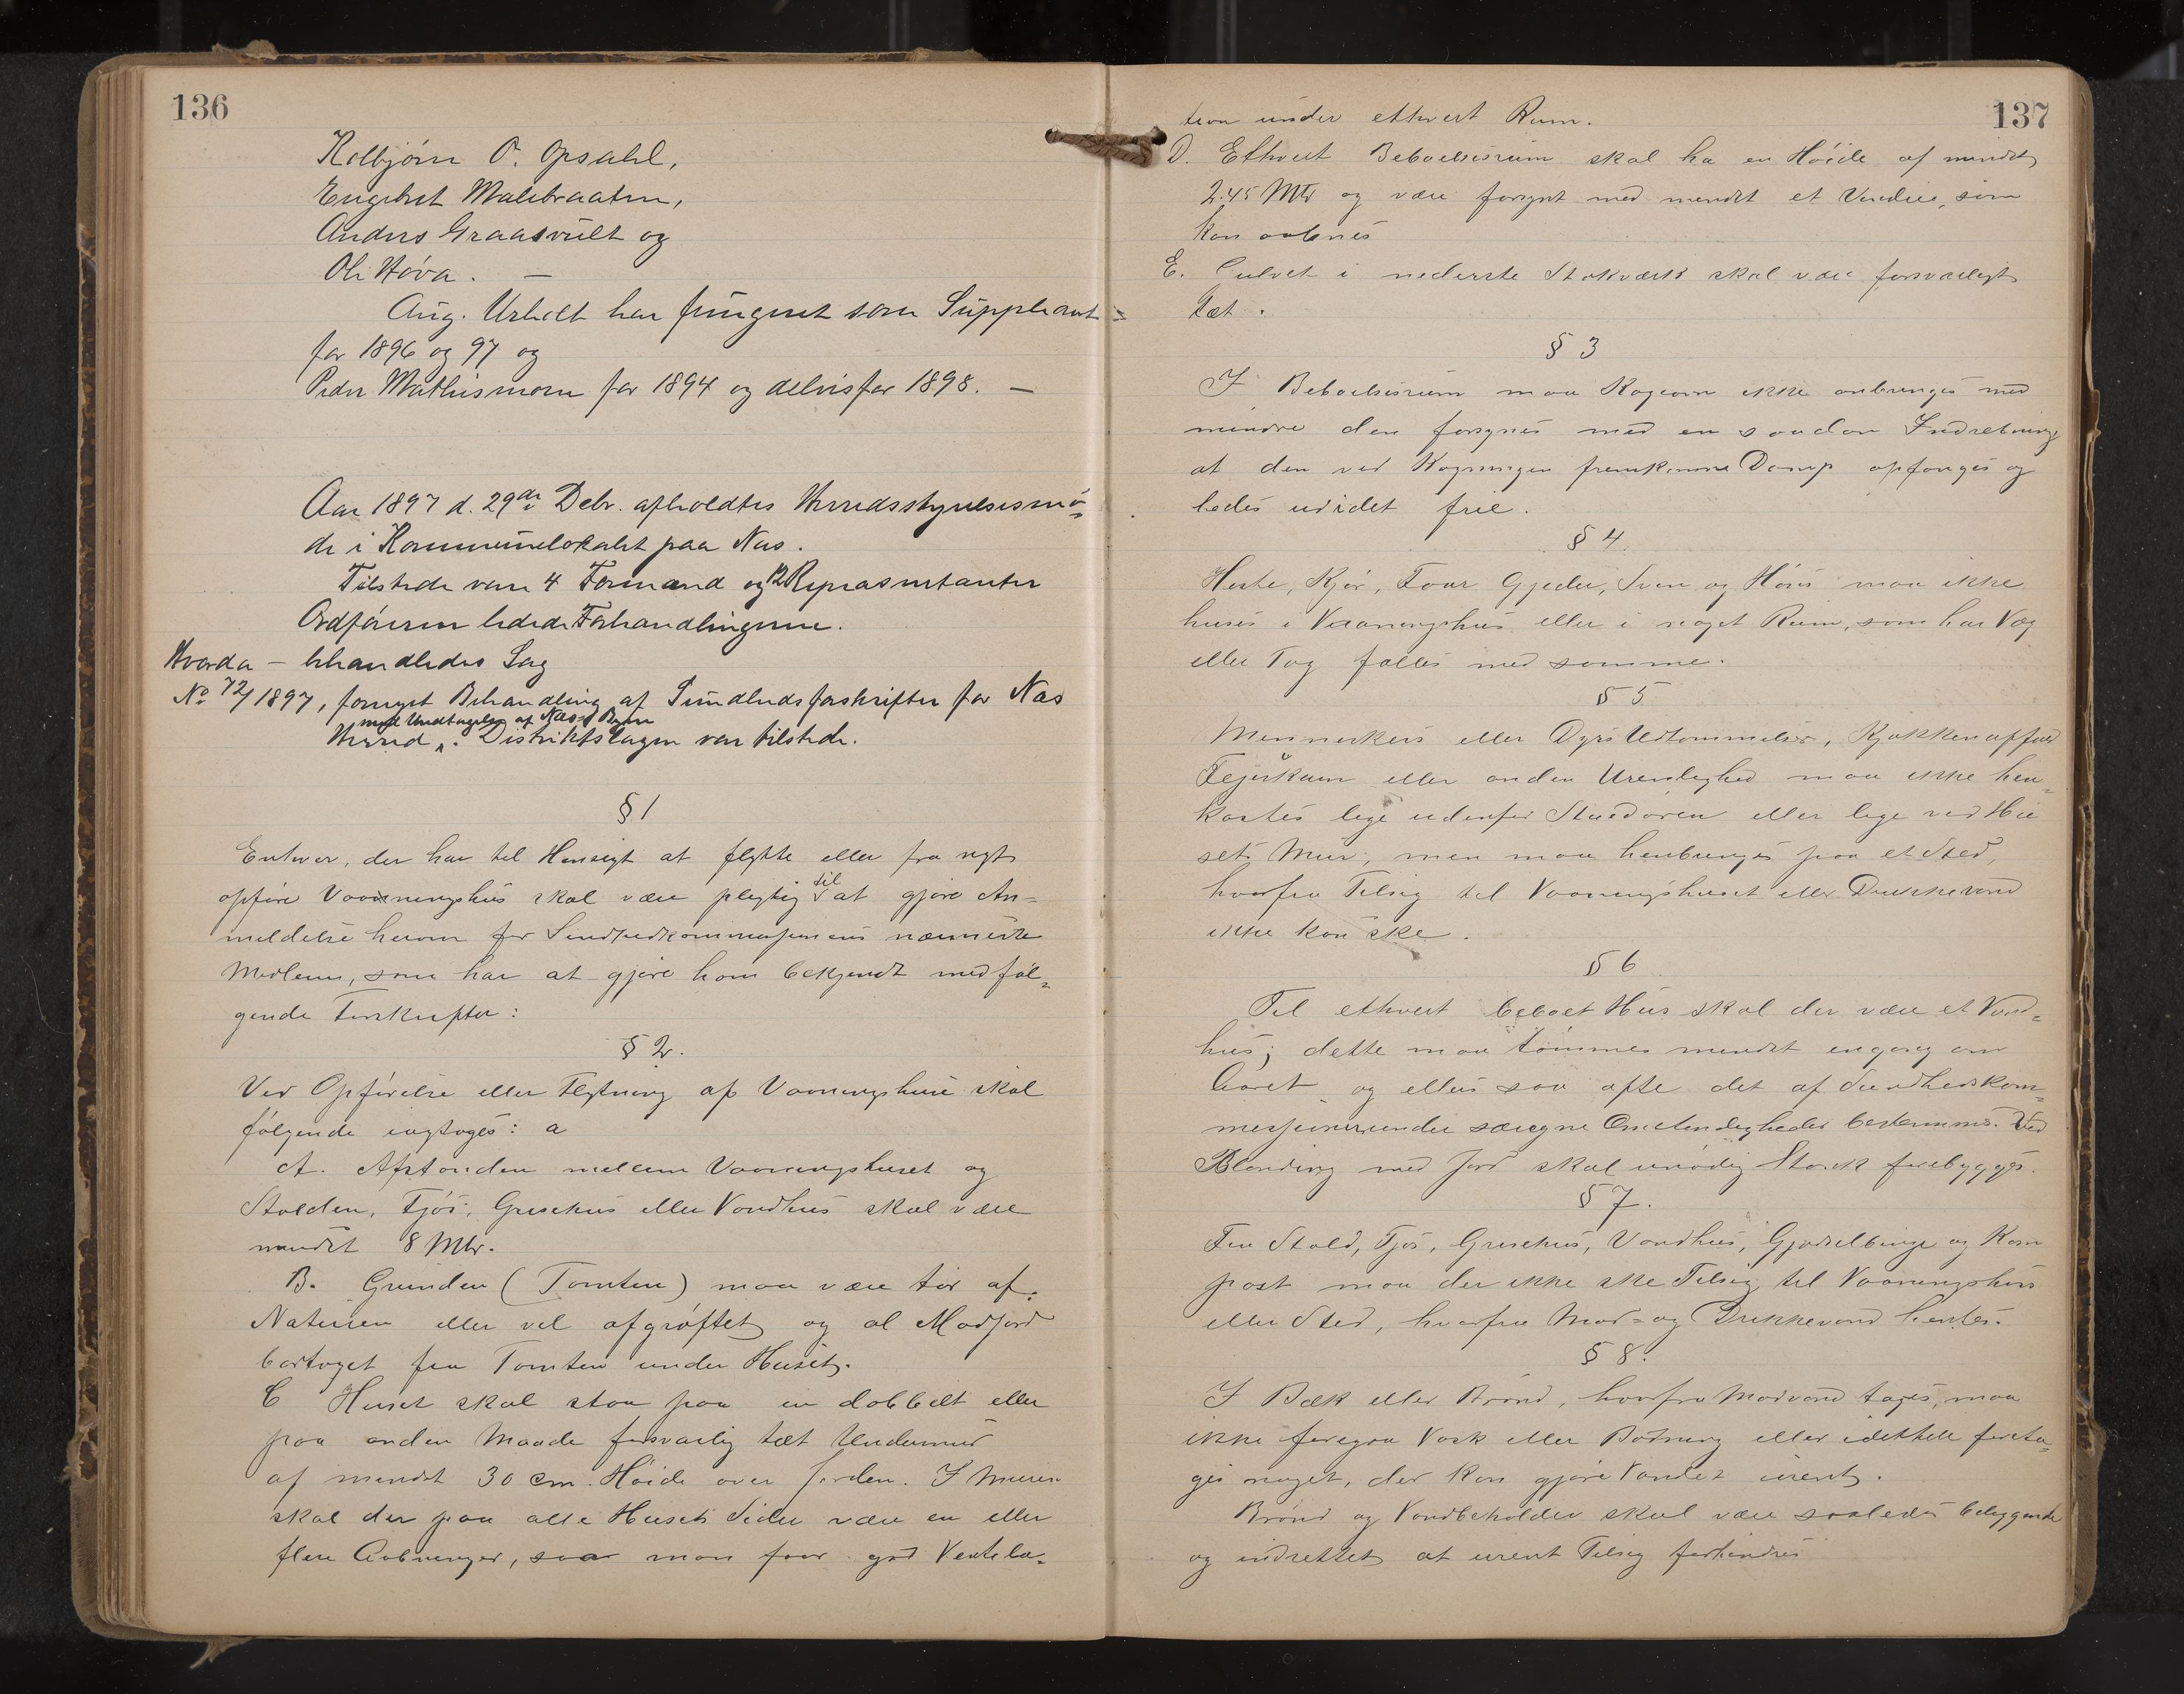 136
Kolbjørn O. Opsahl,
Engebret Malebraaten,
Anders Graasvult og
Ole Høva. —
Aug. Urholt har fungeret som Suppleant
for 1896 og 97 og
Peder Mathismoen for 1894 og delvis for 1898. —
Aar 1897 d. 29de Debr. afholdtes Herredsstyrelsesmø=
de i Kommunelokalet paa Næs.
Tilstede vare 4 Formænd og 12 Repræsentanter
Ordføreren ledede Forhandlingerne.
Hvorda – behandledes Sag
No 72/1897, fornyet Behandling af Sundhedsforskrifter for Næs
med Undtagelse af Næs's Byen
Herred. Distriktslægen var tilstede.
§ 1
Enhver, der har til Hensigt at flytte eller fra nyt
opføre Vaaningshus skal være plegtig til at gjøre An-
meldelse herom for Sundhedkommissionens nærmeste
Medlem, som har at gjøre ham bekjendt med føl=
gende Forskrifter:
§ 2.
Ved Opførelse eller Flytning af Vaaningshuse skal
følgende iagtages: a
A. Afstanden mellem Vaaningshuset og
Stalden, Fjøs, Grisehus eller Vandhus skal være
mindst 8 Mtr.
B. Grunden (Tomten) maa være tør af
Naturen eller vel afgrøftet og al Madjord
bortaget fra Tomten under Huset.
C Huset skal staa paa en dobbelt eller
paa anden Maade forsvarlig tæt Undermur
af mindst 30 cm. Høide over Jorden. I Muren
skal der paa alle Husets Sider være en eller
flere Aabninger, saa man faar god Ventila=
137
tion under ethvert Rum.
D. Ethvert Beboelsesrum skal ha en Høide af mindst
2.45 Mtr og være forsynt med mindst et Vindue, som
kan aabnes
E. Gulvet i nederste Stokværk skal være forsvarligt
tæt.
§ 3
I Beboelsesrum maa Kogeovn ikke anbringes med
mindre den forsynes med en saadan Indretning
at den ved Kogningen fremkomne Damp opfanges og
ledes ud i det frie.
§ 4.
Heste, Kjør, Faar Gjeder, Svin og Høns maa ikke
huses i Vaaningshus eller i noget Rum, som har Væg
eller Tag fælles med samme.
§ 5
Menneskers eller Dyrs Udtømmelser, Kjøkkenaffald
Fejeskarn eller anden Urenlighed maa ikke hen=
kastes lige udenfor Stuedøren eller lige ved Hu
sets Mur, men maa henbringes paa et Sted,
hvorfra Tilsig til Vaaningshuset eller Drikkevand
ikke kan ske.
§ 6
Til ethvert beboet Hus skal der være et Vand=
hus; dette maa tømmes mindst engang om
Aaret og ellers saa ofte det af Sundhedskom=
missionen under særegne Omstendigheder bestemmes. Ved
Blanding med Jord skal unødig Stank forebygges.
§ 7.
Fra Stald, Fjøs, Grisehus, Vandhus, Gjødselbinge og Kom
post maa der ikke ske Tilsig til Vaaningshus
eller Sted, hvorfra Mad= og Drikkevand hentes.
§ 8.
I Bæk eller Brønd, hvorfra Madvand tages, maa
ikke foregaa Vask eller Bøtning eller idethele foreta=
ges noget, der kan gjøre Vandet urent.
Brønd og Vandbeholder skal være saaledes beliggende
og indrettet at urent Tilsig forhindres